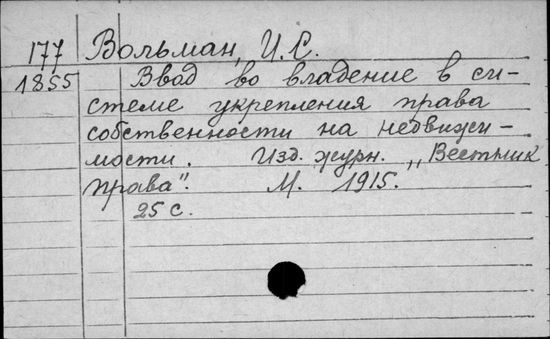 177 Вольман, И.С.
1855 Ввод во владение в си-
стеме укрепления права
собственности на недвижи-
мости. Изд. журн. „Вестник
права". М. 1915.
25 с.